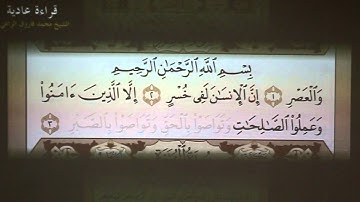 قراءة عادية
الشيخ محمد فاروق الراعي
بِسْمِ اللَّهِ الرَّحْمَٰنِ الرَّحِيمِ
وَالْعَصْرِ ١ إِنَّ الْإِنسَانَ لَفِي خُسْرٍ ٢ إِلَّا الَّذِينَ ءَامَنُوا
وَعَمِلُوا الصَّالِحَاتِ وَتَوَاصَوْا بِالْحَقِّ وَتَوَاصَوْا بِالصَّبْرِ ٣